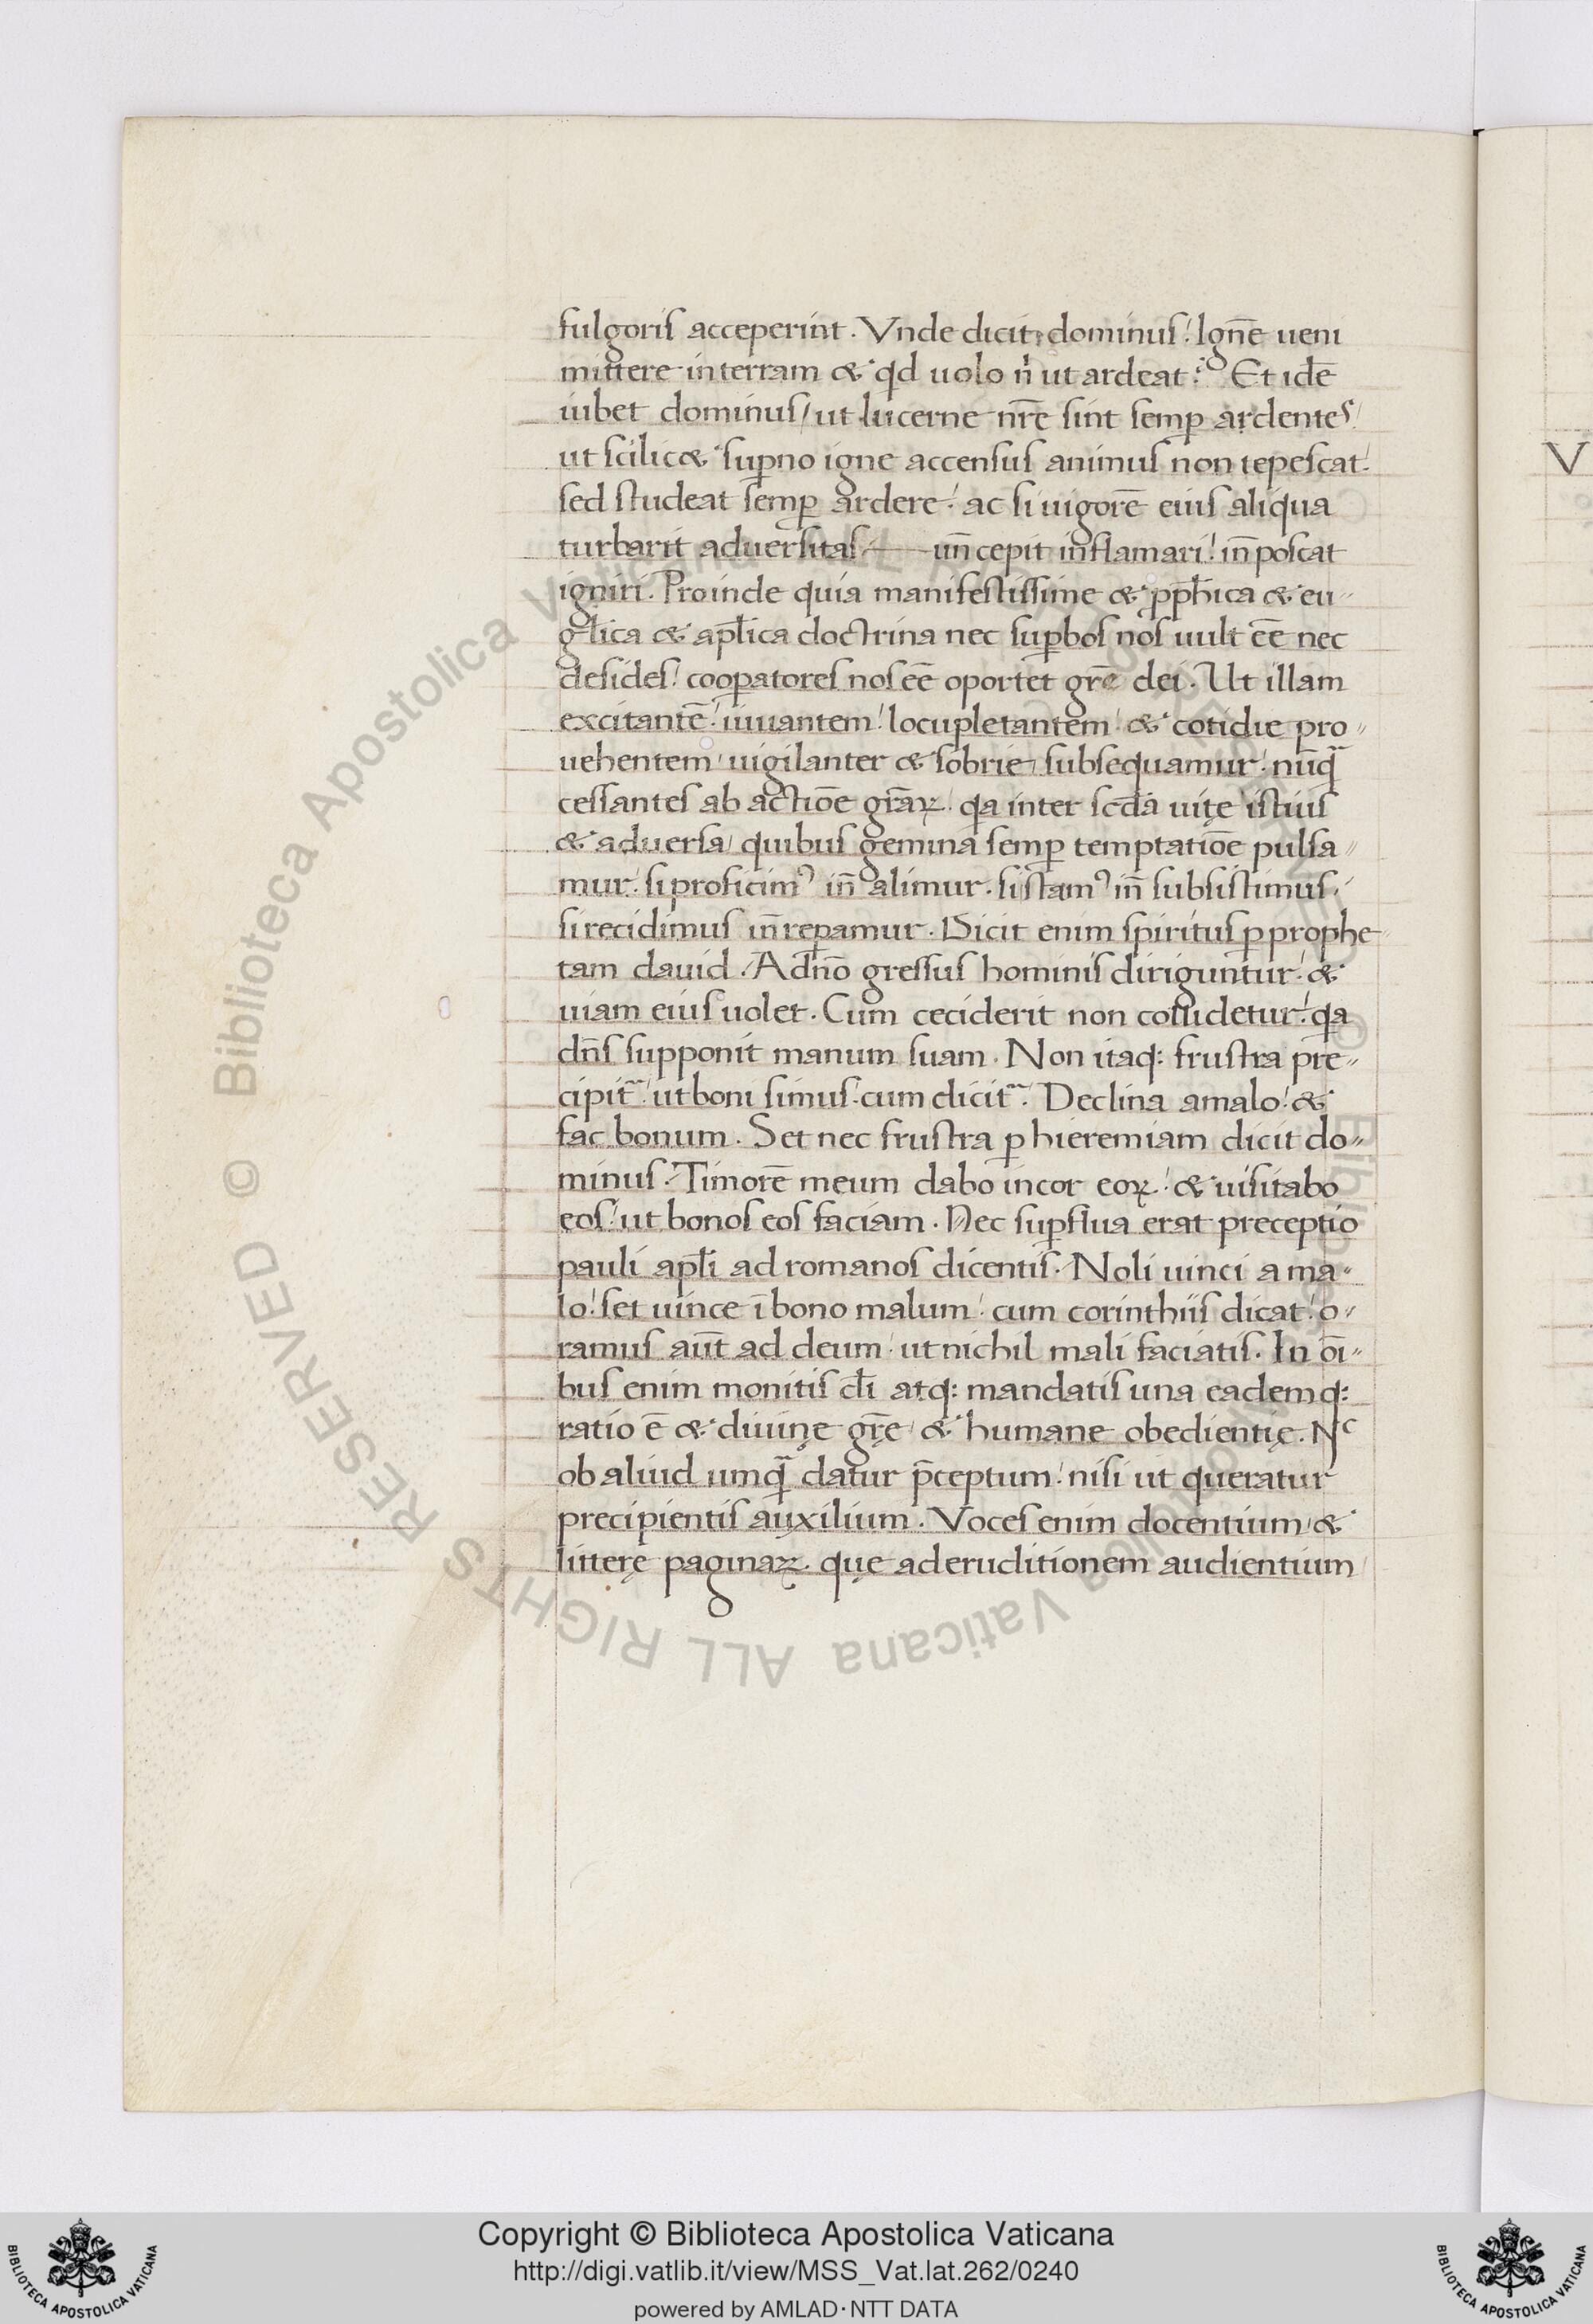 fulgoris acceperint. Vnde dicit dominus! Ignē ueni
mittere in terram & qd uolo n̓ ut ardeat? Et idē
iubet dominus/ ut lucerne nr̄ę sint semꝑ ardentes
ut scilicæ suꝑno igne accensus animus non tepescat.
sed studeat semꝑ ardere! ac si uigorē eius aliqua
turbarit aduersitas — un̄ cepit inflamari! in̄ poscat
igniri. Proinde quia manifestissime & ꝓph̄ica & eu-
gl̄ica & apl̄ica doctrina nec suꝑbos nos uult eē nec
desides! cooꝑatores nos eē oportet grē dei. Ut illam
excitantē! iuuantem! locupletantem & cotidie pro-
uehentem uigilanter & sobrie subsequamur. nūq̄
cessantes ab actiōe gr̄aꝝ. qa inter scd̄a uitę istius
& aduersa quibus gemina semꝑ temptatiōe pulsa-
mur. si proficimꝰ in̄ alimur. si stamꝰ in̄ subsistimus.
si recidimus in̄ reꝑamur. Dicit enim spiritus ꝑ prophe-
tam dauid. A dn̄o gressus hominis diriguntur. &
uiam eius uolet. Cum ceciderit non collidetur! qa
dn̄s supponit manum suam. Non itaq: frustra pre-
cipit᷑ ut boni simus. cum dicit᷑. Declina a malo! &
fac bonum. Set nec frustra ꝑ hieremiam dicit do-
minus. Timorē meum dabo in cor eoꝝ. & uisitabo
eos! ut bonos eos faciam. Nec suꝑflua erat preceptio
pauli apl̄i ad romanos dicentis. Noli uinci a ma-
lo! set uince ī bono malum! cum corinthiis dicat! o-
ramus aut̄ ad deum ut nichil mali faciatis. In ōi-
bus enim monitis dī atq: mandatis una eademq:
ratio ē & diuinę gr̄ę & humane obedientię. Nᶜ
ob aliud umq̄ datur p̄ceptum! nisi ut queratur
precipientis auxilium. Voces enim docentium &
litterę paginaꝝ. quę ad eruditionem audientium
V
Copyright © Biblioteca Apostolica Vaticana
http://digi.vatlib.it/view/MSS_Vat.lat.262/0240
powered by AMLAD·NTT DATA
© Biblioteca Apostolica Vaticana ALL RIGHTS RESERVED
BIBLIOTECA APOSTOLICA VATICANA
BIBLIOTECA APOSTOLICA VATICANA